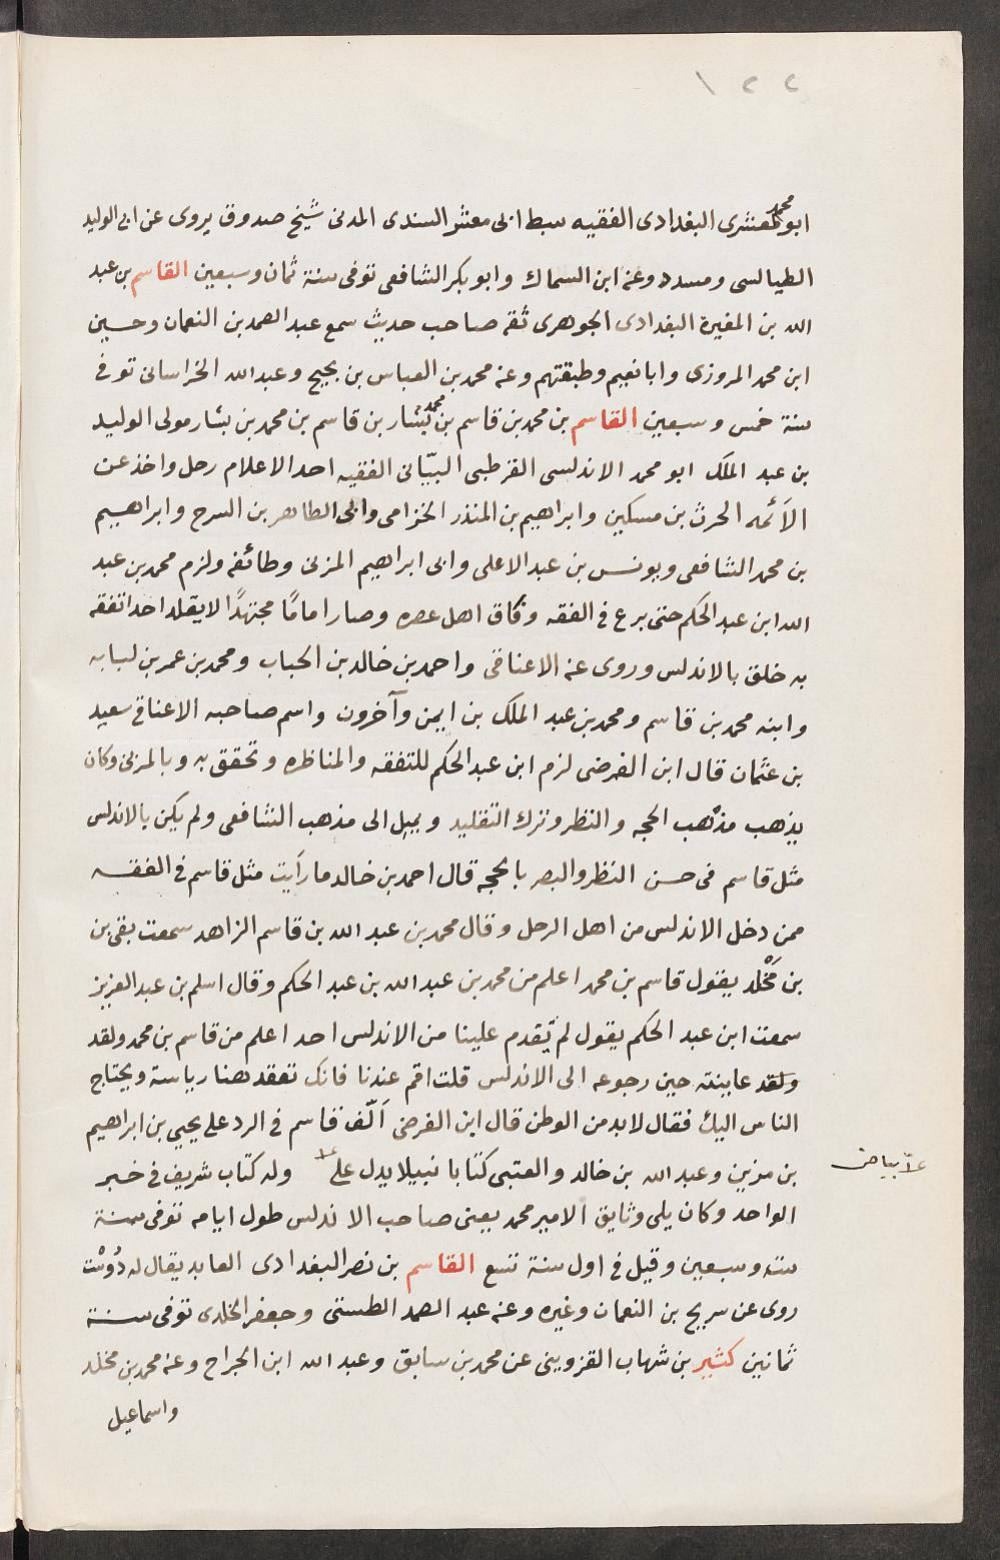 ١٢٢
ابو محمد المعشرى البغدادى الفقيه سبط ابى معشر السندى المدنى شيخ صدوق يروى عن ابى الوليد
الطيالسى ومسدد وعنه ابن السماك وابو بكر الشافعى توفى سنة ثمان وسبعين القاسم بن عبد
الله بن المغيرة البغدادى الجوهرى ثقه صاحب حديث سمع عبد الصمد بن النعمان وحسين
ابن محمد المروزى وابا نعيم وطبقتهم وعنه محمد بن العباس بن نجيح وعبد الله الخراسانى توفى
سنة خمس وسبعين القاسم بن محمد بن قاسم بن محمد بن بشار بن قاسم بن محمد بن بشار مولى الوليد
بن عبد الملك ابو محمد الاندلسى القرطبى البيّانى الفقيه احد الاعلام رحل واخذ عن
الأئمه الحرث بن مسكين وابراهيم بن المنذر الخزامى وابى الطاهر بن السرح وابراهيم
بن محمد الشافعى ويونس بن عبد الاعلى وابى ابراهيم المزنى وطائفه ولزم محمد بن عبد
الله ابن عبد الحكم حتى برع فى الفقه وفاق اهل عصره وصار امامًا مجتهدًا لا يقلد احدا تفقه
به خلق بالاندلس وروى عنه الاعناقى واحمد بن خالد بن الحباب ومحمد بن عمر بن لبابه
وابنه محمد بن قاسم ومحمد بن عبد الملك بن ايمن وآخرون واسم صاحبه الاعناقى سعيد
بن عثمان قال ابن الفرضى لزم ابن عبد الحكم للتفقه والمناظره وتحقق به وبالمزنى وكان
يذهب مذهب الحجه والنظر وترك التقليد ويميل الى مذهب الشافعى ولم يكن بالاندلس
مثل قاسم فى حسن النظر والبصر بالحجه قال احمد بن خالد ما رأيت مثل قاسم فى الفقه
ممن دخل الاندلس من اهل الرحل وقال محمد بن عبد الله بن قاسم الزاهد سمعت بقى بن
بن مَخْلد يقول قاسم بن محمد اعلم من محمد بن عبد الله بن عبد الحكم وقال اسلم بن عبد العزيز
سمعت ابن عبد الحكم يقول لم يقدم علينا من الاندلس احد اعلم من قاسم بن محمد ولقد
ولقد عاينته حين رجوعه الى الاندلس قلت اقم عندنا فانك تعقد هنا رياسة ويحتاج
الناس اليك فقال لابد من الوطن قال ابن الفرضى ألّف قاسم فى الرد على يحيى بن ابراهيم
بن مزين وعبد الله بن خالد والعتبى كتابا نبيلا يدل على وله كتاب شريف فى خبر
بياض
الواحد وكان يلى وثايق الامير محمد يعنى صاحب الاندلس طول ايامه توفى سنة
سته وسبعين وقيل فى اول سنة تسع القاسم بن نصر البغدادى العابد يقال له دُوسْت
روى عن سريج بن النعمان وغيره وعنه عبد الصمد الطستى وجعفر الخلدى توفى سنة
ثمانين كثير بن شهاب القزوينى عن محمد بن سابق وعبد الله ابن الجراح وعنه محمد بن مخلد
واسماعيل